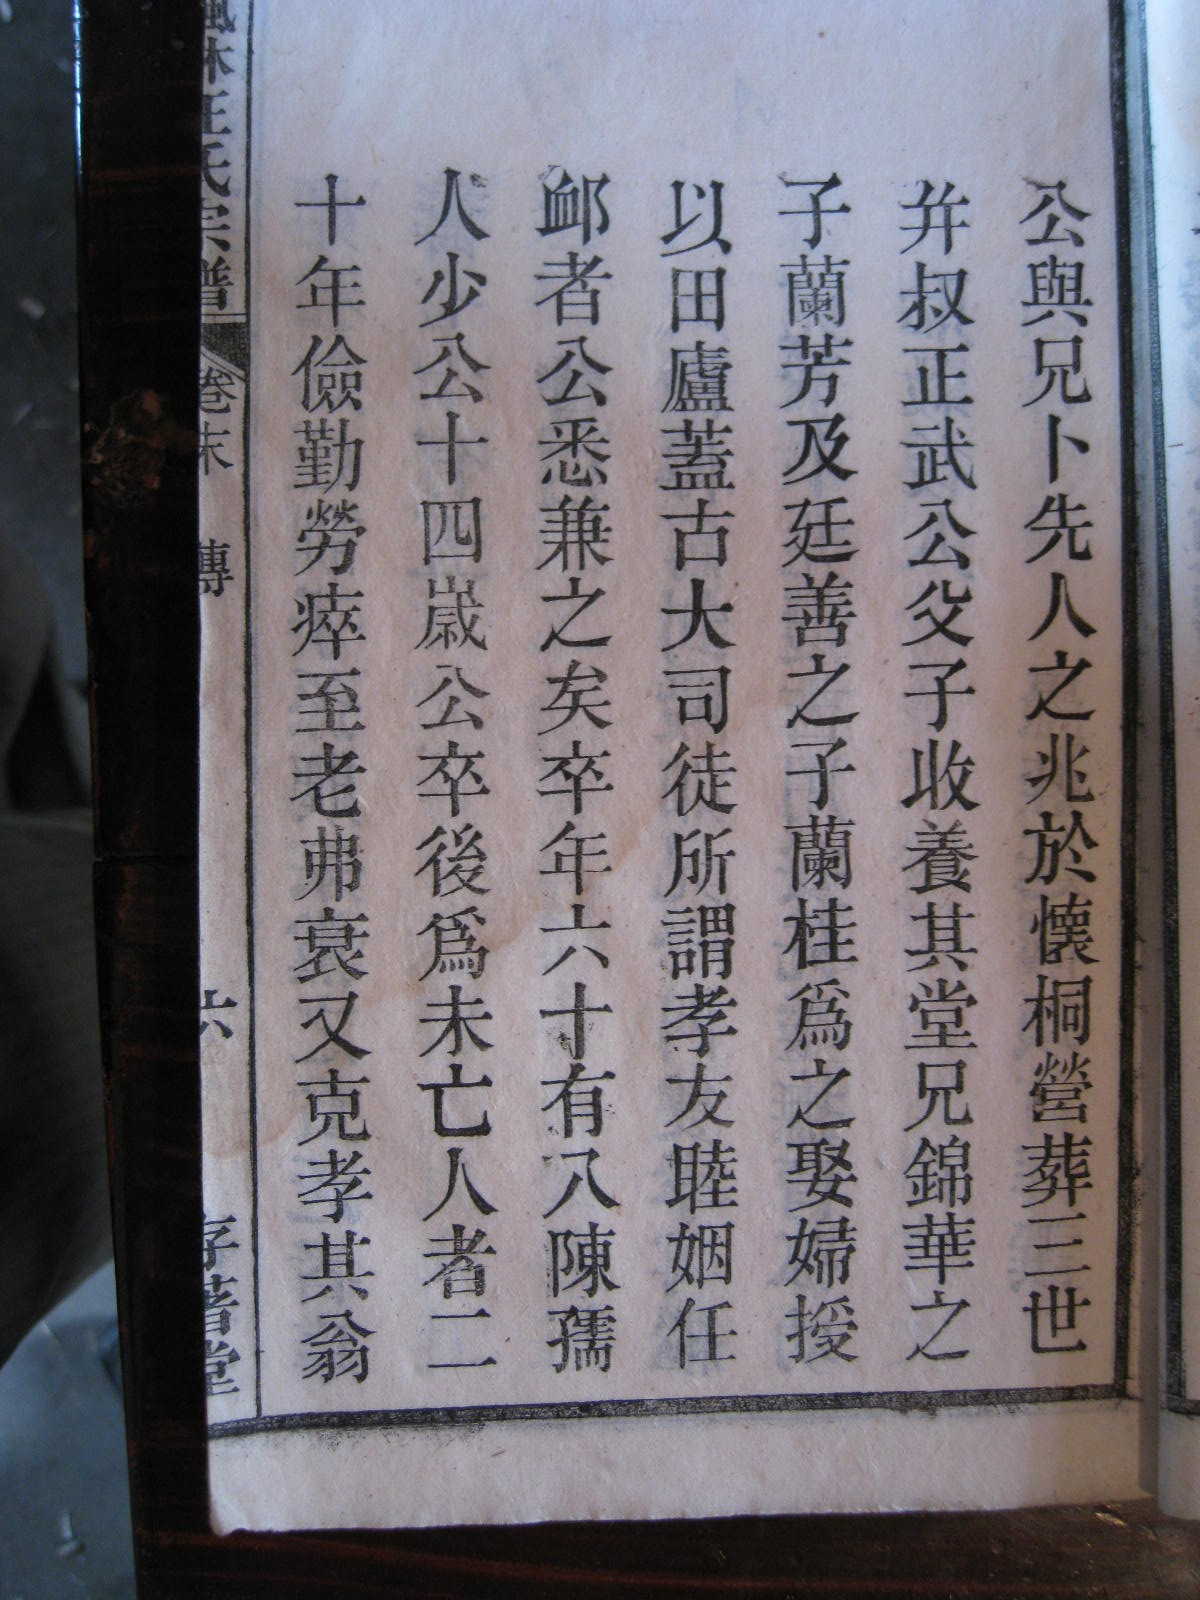 公與兄卜先人之兆於懷桐營葬三世
并叔正武公父子收養其堂兄錦華之
子蘭芳及廷善之子蘭桂爲之娶婦授
以田廬蓋古大司徒所謂孝友睦姻任
卹者公悉兼之矣卒年六十有八陳孺
人少公十四歲公卒後爲未亡人者二
十年儉勤勞瘁至老弗衰又克孝其翁
林汪氏宗譜 卷末 傳 六 存著堂